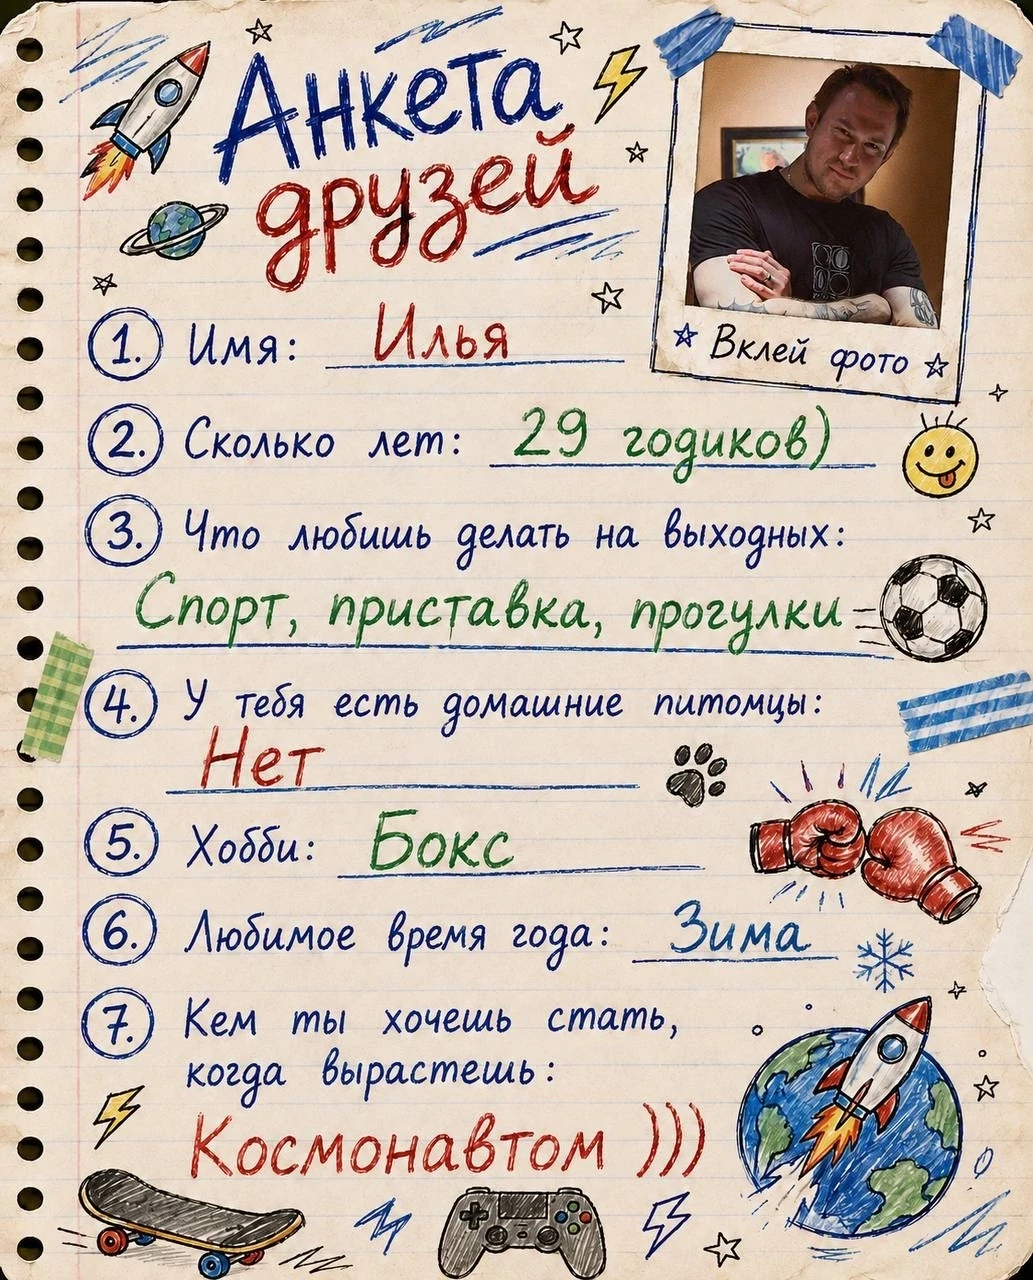 Анкета
друзей
Вклей фото
1. Имя: Илья
2. Сколько лет: 29 годиков)
3. Что любишь делать на выходных:
Спорт, приставка, прогулки
4. У тебя есть домашние питомцы:
Нет
5. Хобби: Бокс
6. Любимое время года: Зима
7. Кем ты хочешь стать,
когда вырастешь:
Космонавтом )))